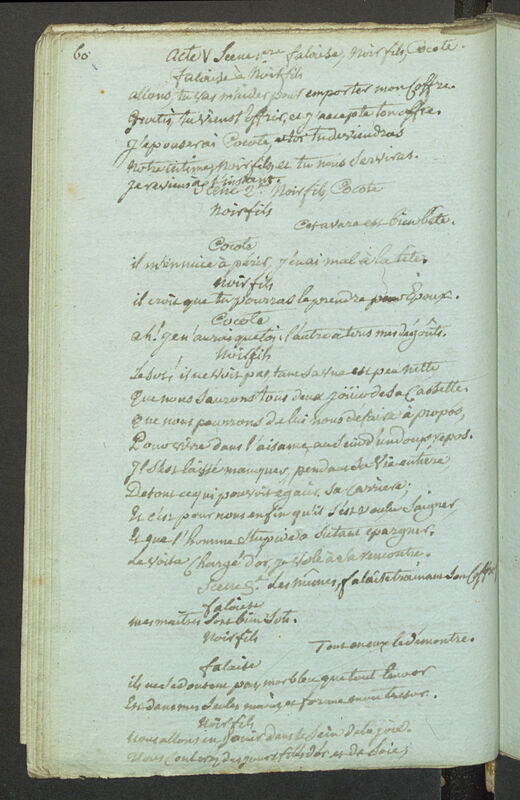 60
acte V Scene 1ere falaise, Noirfils, Cocote.
falaise à Noirfils
allons, tu vas m'aider pour emporter mon Coffre.
Gratis tu viens t'offrir, et j'accepte ton offre.
J'épouserai Cocote, et toi tu deviendras
Notre intime, Noirfils, et tu nous serviras.
je reviens à l'instant.
Scene 2e Noirfils, Cocote
Noirfils
Cet avare est bien bête.
Cocote
il m'ennuie à périr, j'en ai mal à la tête.
Noirfils
il croit que tu pourras le prendre pour Epoux.
Cocote
ah! je n'aurai que toi. l'autre a tous mes dégoûts.
Noirfils
Le sot! il ne voit pas, tant sa vue est peu nette
Que nous saurons tous deux jouir de sa Cassette.
Que nous pourrons de lui nous défaire à propos,
Pour vivre dans l'aisance, au sein d'un doux repos.
Il s'est laissé manquer, pendant sa vie entière
De tout ce qui pouvoit égaier sa Carrière.
Et c'est pour nous enfin qu'il s'est voulu saigner
Et que l'homme stupide a su tant épargner.
Le voila Chargé d'or, je vole à sa rencontre.
Scene 3e les mêmes, falaise trainant son Coffre
falaise
mes maîtres sont bien sots.
Noirfils
Tout en eux le démontre.
falaise
ils ne se doutent pas, morbleu, que tout leur or
Est dans mes seules mains, et forme mon tresor.
Noirfils
Nous allons en jouir dans le sein de la joie.
Nous Coulerons des jours filés d'or et de soie;